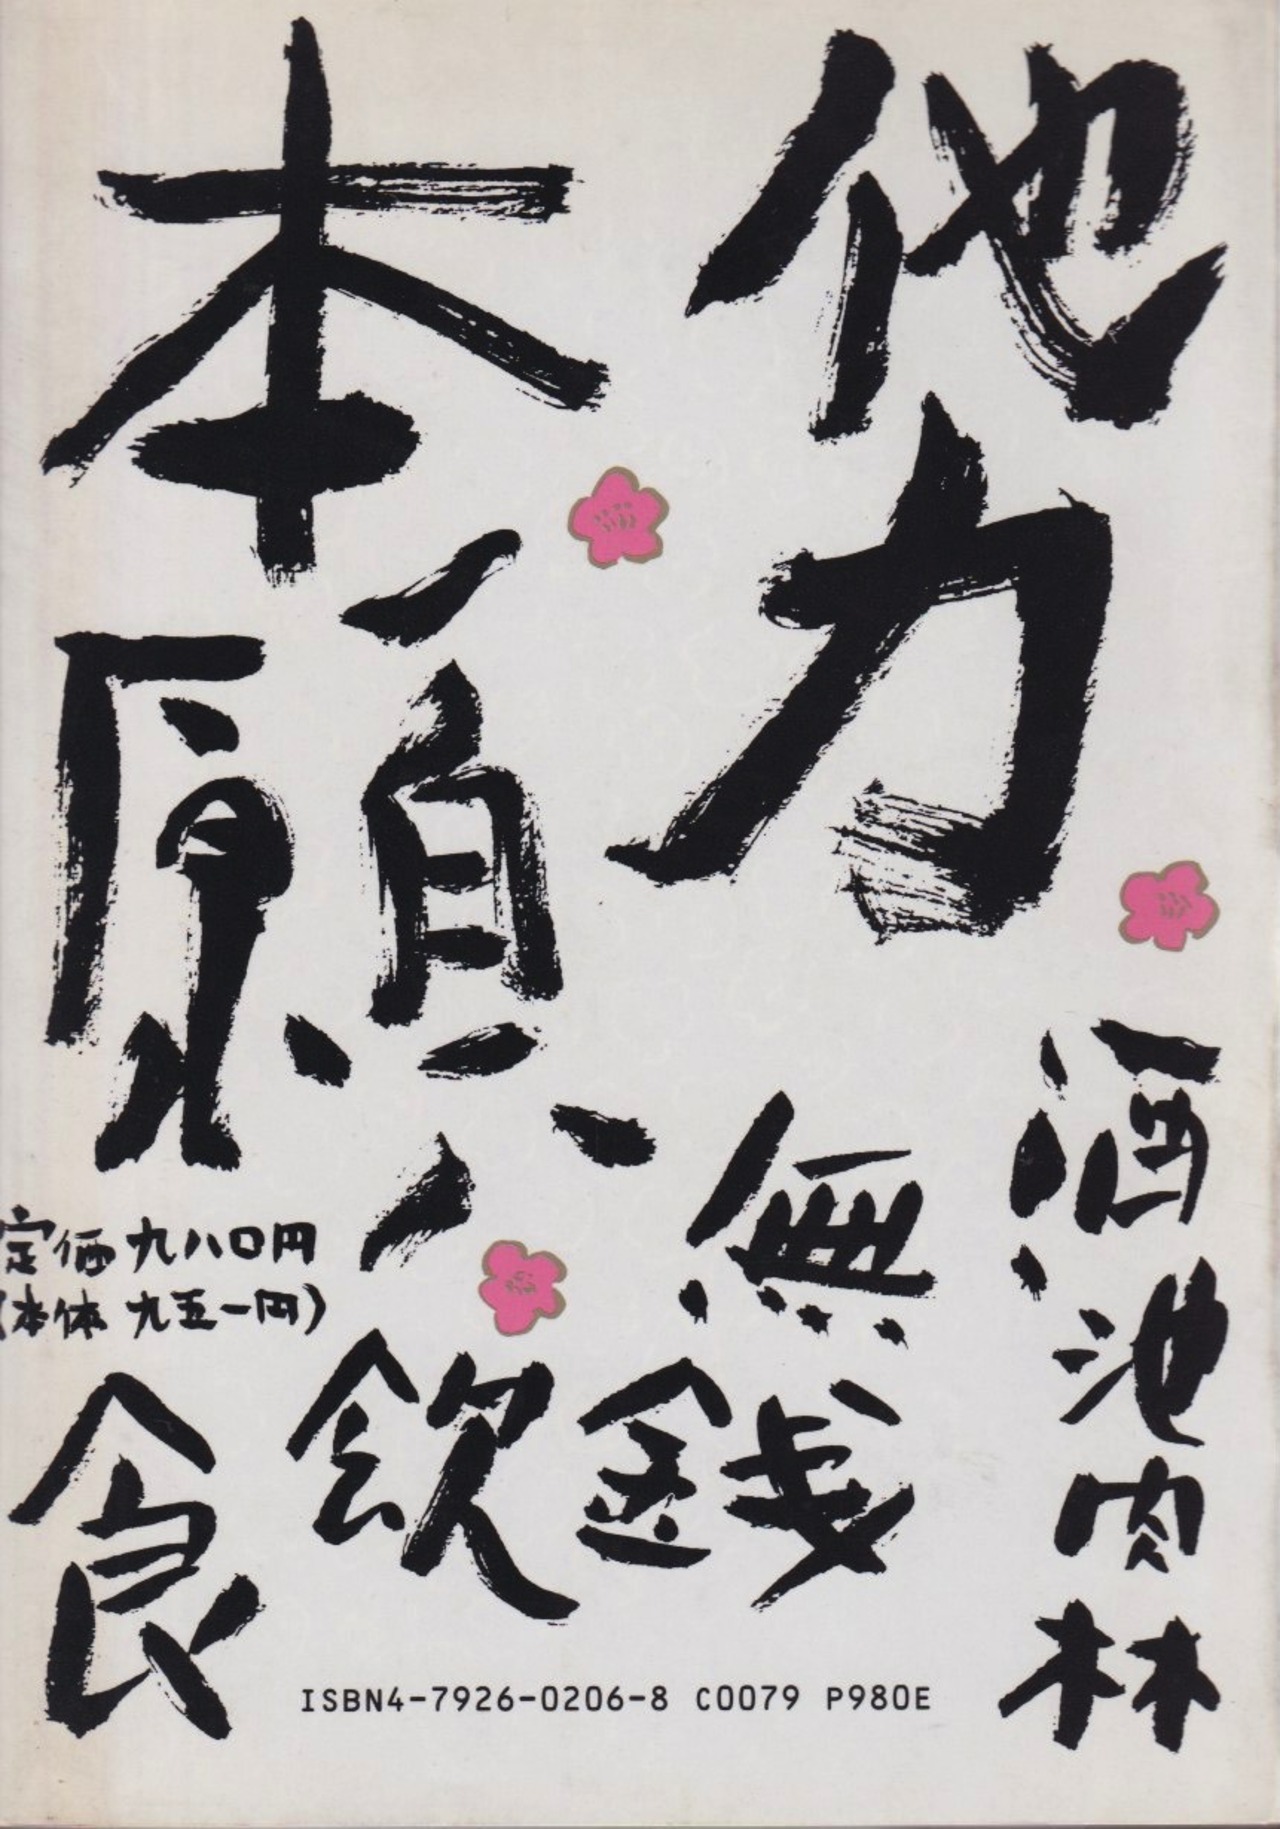 他力
本願
酒池肉林
無銭飲食
定価 九八〇円
(本体 九五一円)
ISBN4-7926-0206-8 C0079 P980E